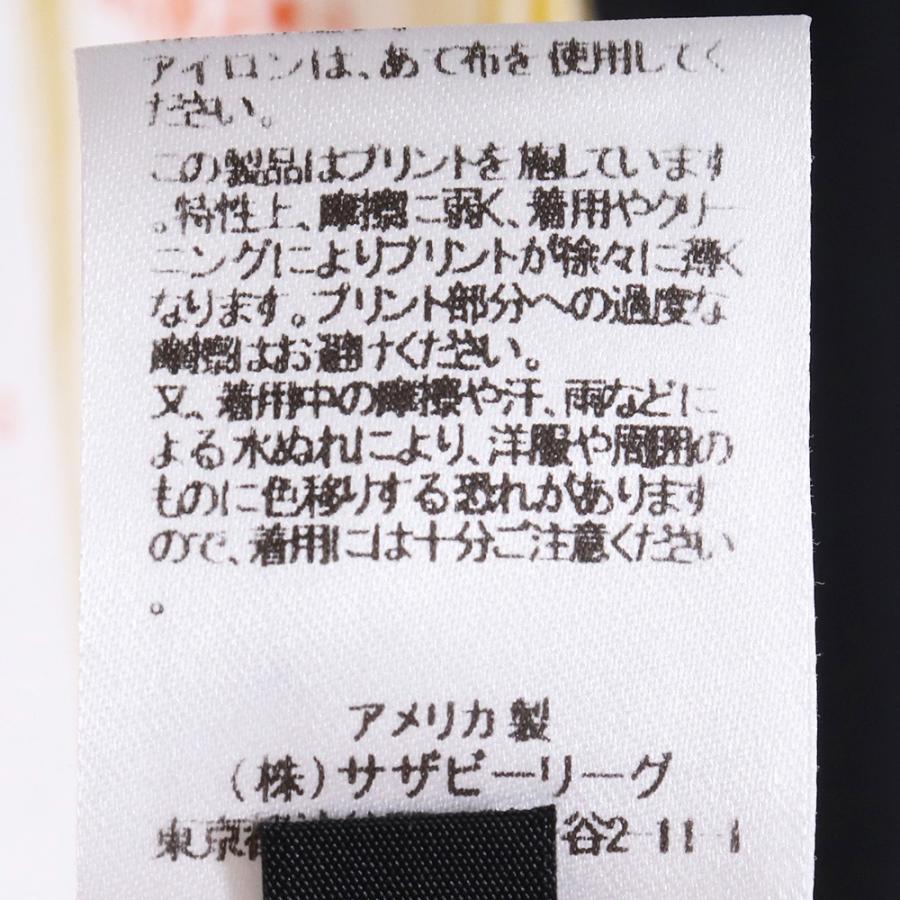 アイロンは、あて布を使用してく
ださい。
この製品はプリントを施しています
。特性上、摩擦に弱く、着用やクリー
ニングによりプリントが徐々に薄く
なります。プリント部分への過度な
摩擦はお避けください。
又、着用中の摩擦や汗、雨などに
よる水ぬれにより、洋服や周囲の
ものに色移りする恐れがあります
ので、着用には十分ご注意ください
。
アメリカ製
(株)サザビーリーグ
東京都 谷2-11-1